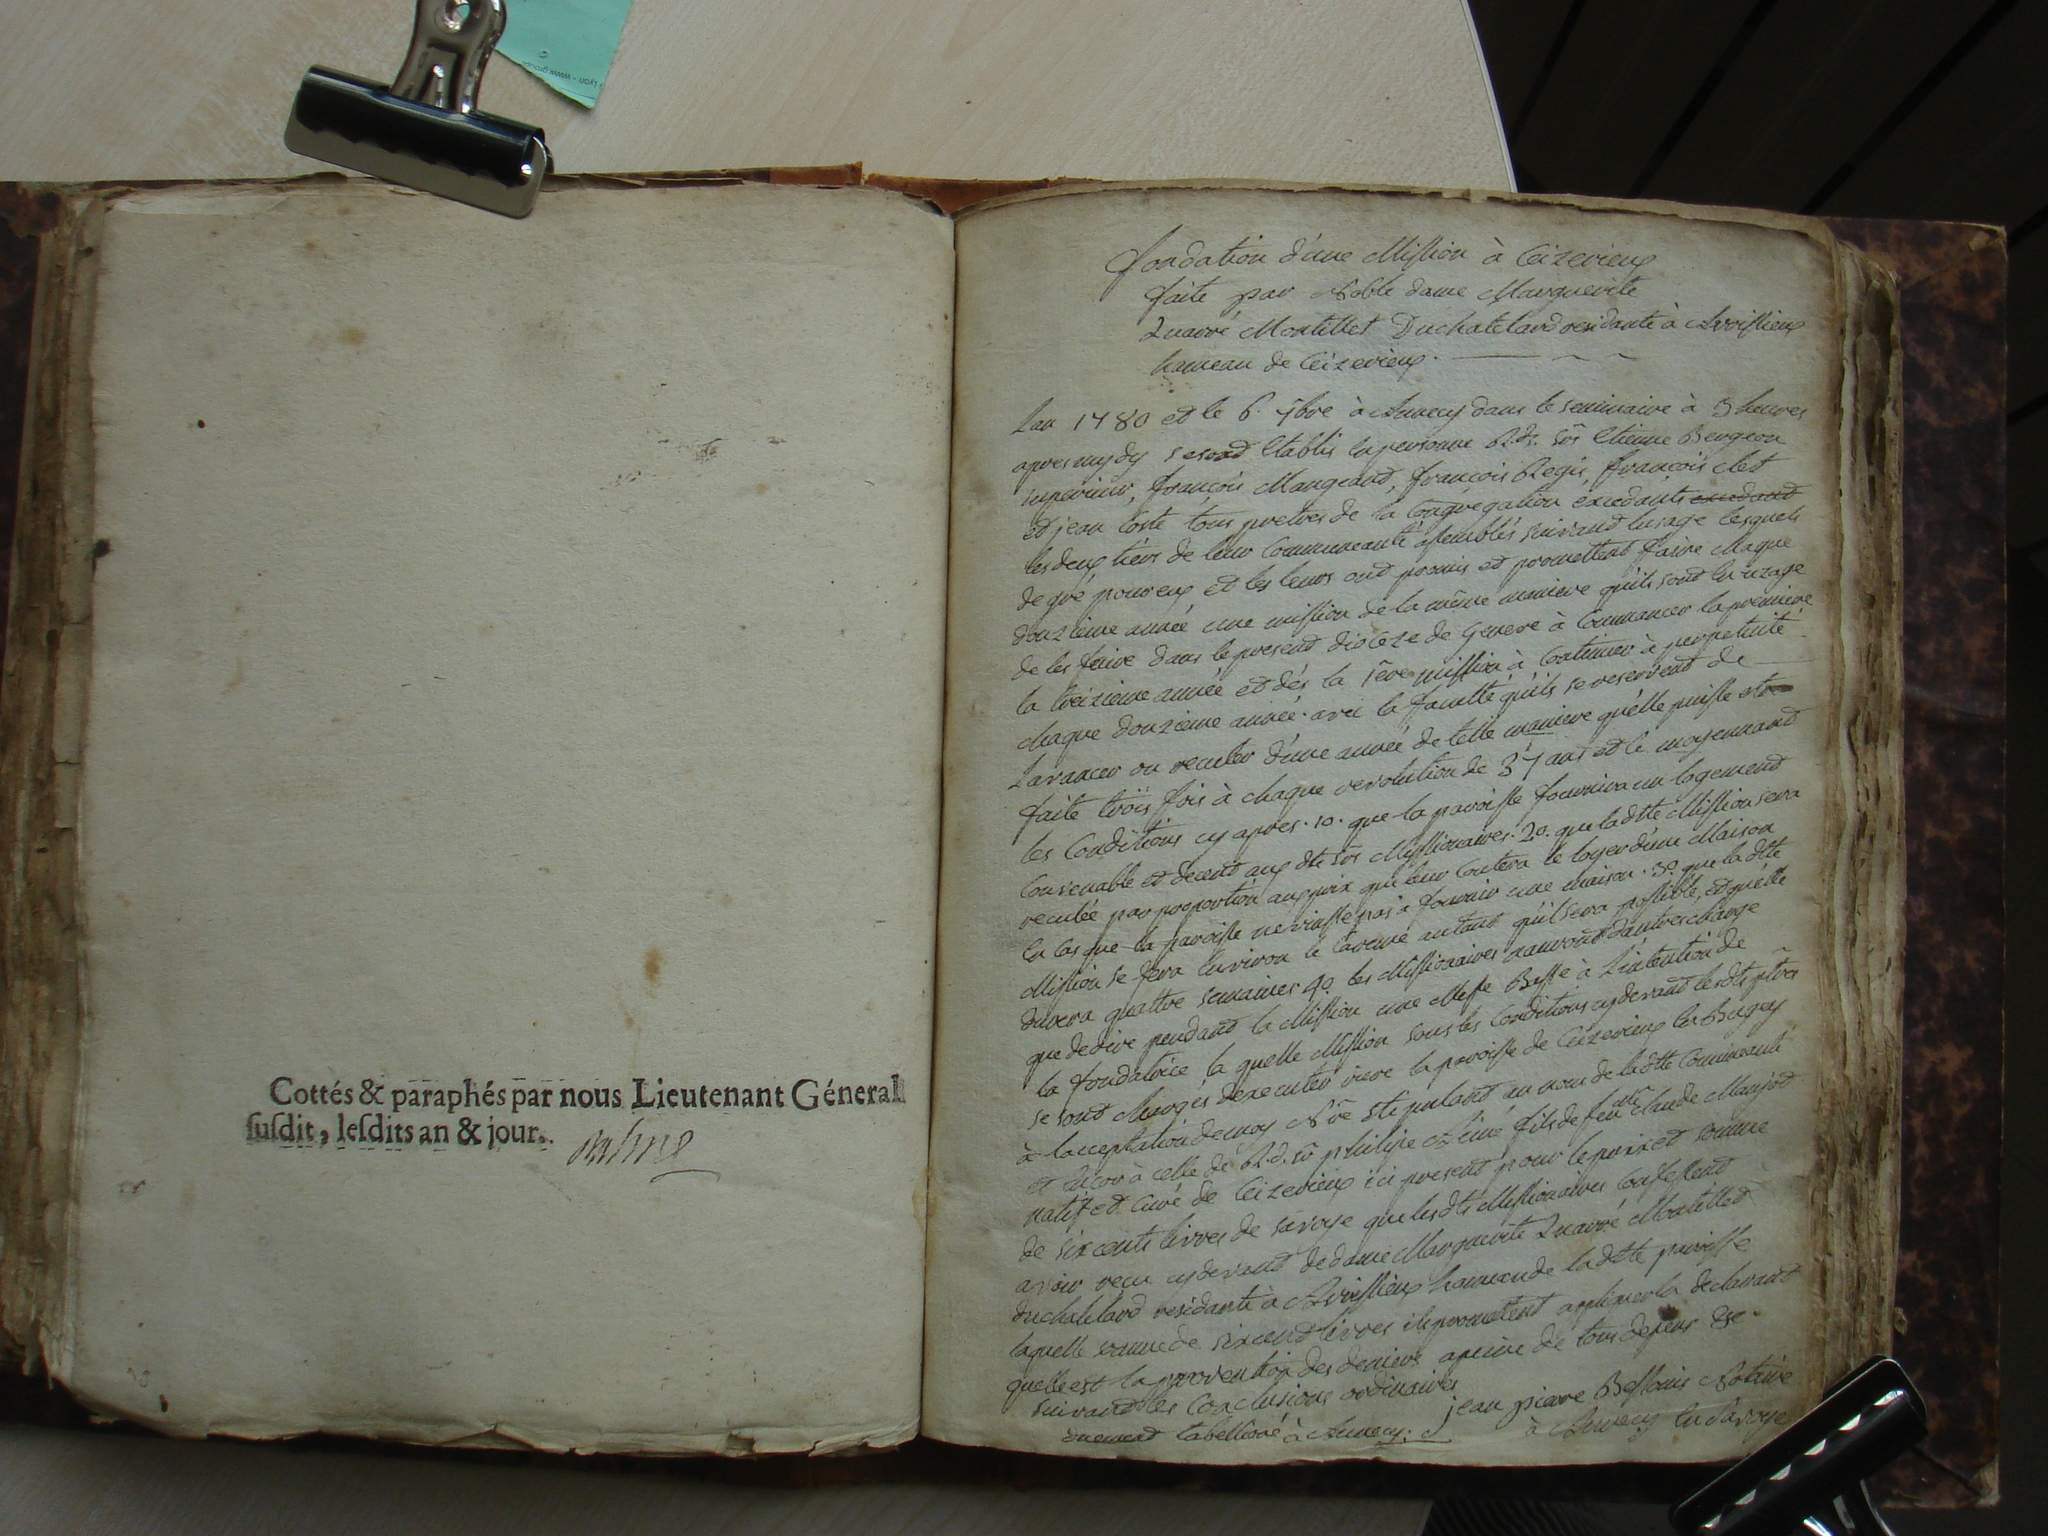 Cottés & paraphés par nous Lieutenant Géneral
ſuſdit, leſdits an & jour.
fondation d'une Mission à Ceizerieux
faite par Noble dame Marguerite
Quarré Montillet Duchatelard residante à Avrissieux
hameau de Ceizerieux.
Lan 1780 et le 6. 7bre à Annecy dans le seminaire à 3 heures
apres mydy se sont Etablis en personne R.ds. srs Etienne Bergeron
superieur, françois Mangeard, françois Regis, françois Clet
et jean Coste tous pretres de la Congregation excedants excedant
les deux tiers de leur Communeauté assemblés suivant lusage lesquels
de gré pour eux et les leurs ont promis et promettent faire chaque
douzieme année une mission de la même maniere qu'ils sont en uzage
de les faire dans le present dioceze de Geneve à Commancer la premiere
la treizieme année et dés la 1ere mission à Continuer à perpetuité
chaque douzieme année. avec la faculté qu'ils se reservent de
Lavancer ou reculer d'une année de telle maniere qu'elle puisse etre
faite trois fois à chaque revolution de 37 ans et le moyennant
les Conditions cy apres. 1o. que la paroisse fournira un logement
Convenable et decent aux dts srs Missionaires. 2o. que ladte Mission sera
reculée par proportion au prix que leur Coutera le loyer d'une Maison
en Cas que la paroisse ne vinsse pas à fournir une maison. 3o. que la dte
Mission se fera Environ le Careme autant qu'il sera possible, et quelle
durera quattre semaines 4o. les Missionaires nauront dautres charge
que de dire pendant la Mission une Messe Basse à L'intention de
la fondatrice la quelle Mission sous les Conditions cy devant les dts ptres
se sont Chargés dexecuter riere la paroisse de Ceizerieux en Bugey
à lacceptation de moy Nre stipulant au nom de ladte Communeauté
et Encor à celle de R.d. sr philipe Aimé fils de feu Claude Maujot
natif et Curé de Ceizerieux ici present pour le prix et somme
de six cents livres de savoye que lesdts Missionaires Confessent
avoir reçu cy devant de dame Marguerite Quarré Montillet
duchatelard residante à Avrissieux hameau de ladte paroisse
laquelle somme de six cent livres ils promettent appliquer la declarant
quelle est la provention des deniers apeine de tous depens &c.
suivant les Conclusions ordinaires
jean pierre Notaire
tabellioné à Annecy. à Annecy en Savoye